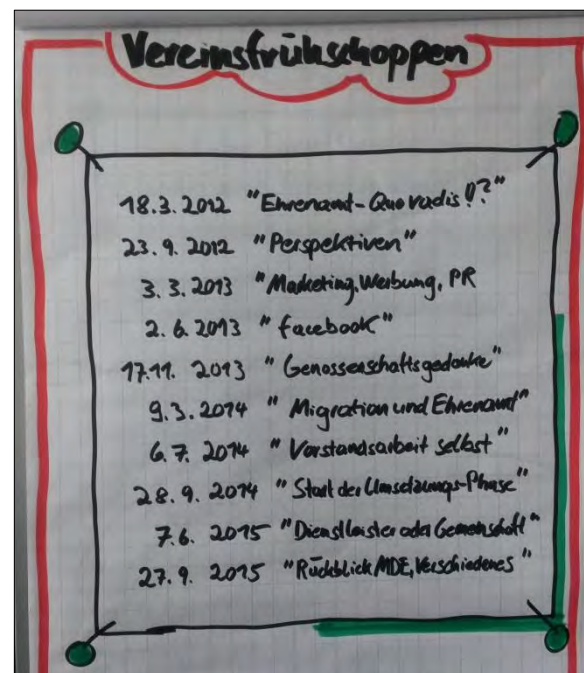 Vereinsfrühschoppen
18.3.2012 "Ehrenamt-Quo vadis!?"
23.9.2012 "Perspektiven"
3.3.2013 "Marketing, Werbung, PR
2.6.2013 "facebook"
17.11.2013 "Genossenschaftsgedanke"
9.3.2014 "Migration und Ehrenamt"
6.7.2014 "Vorstandsarbeit selbst"
28.9.2014 "Start der Umsetzungs-Phase"
7.6.2015 "Dienstleister oder Gemeinschaft"
27.9.2015 "Rückblick MDE, Verschiedenes"